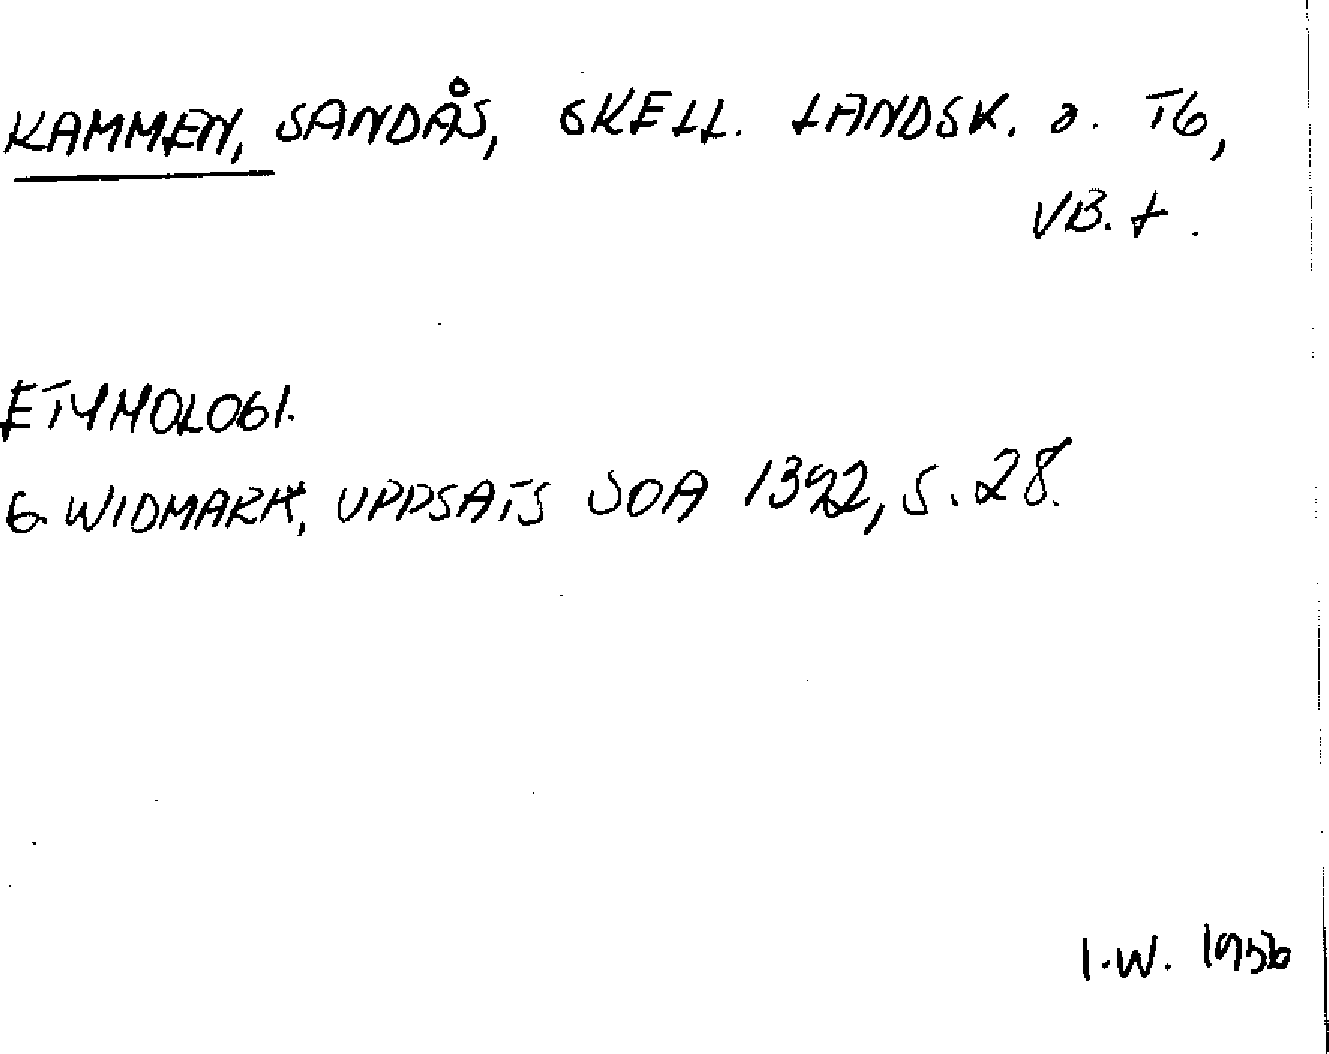 KAMMEN, SANDÅS, SKELL. LANDSK. O. TG,
VB. L.
ETYMOLOGI.
G. WIDMARK, UPPSATS SOA 1392, S. 28.
I.W. 1956